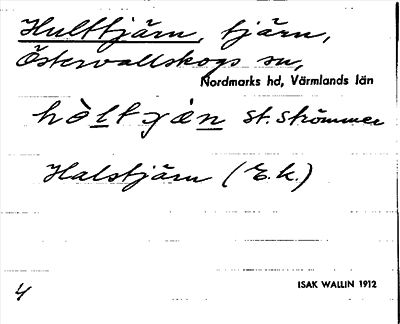 Hulttjärn, tjärn,
Östervallskogs sn,
Nordmarks hd, Värmlands län
st. Strömmer
Halstjärn (E.k.)
ISAK WALLIN 1912
4